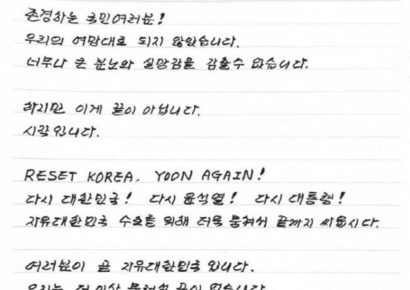 존경하는 국민여러분!
우리의 여망대로 되지 않았습니다.
너무나 큰 분노와 실망감을 감출수 없습니다.
하지만 이게 끝이 아닙니다.
시작입니다.
RESET KOREA. YOON AGAIN!
다시 대한민국! 다시 윤석열! 다시 대통령!
자유대한민국 수호를 위해 더욱 뭉쳐서 끝까지 싸웁시다.
여러분이 곧 자유대한민국 입니다.
우리는 더 이상 물러설 곳이 없습니다